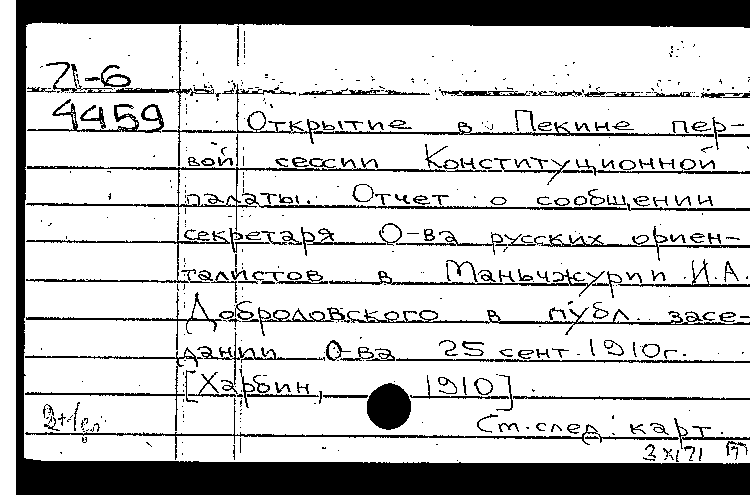 71-6
4459
Открытие в Пекине пер-
вой сессии Конституционной
палаты. Отчет о сообщении
секретаря О-ва русских ориен-
талистов в Маньчжурии И.А.
Доброловского в публ. засе-
дании О-ва 25 сент. 1910г.
[Харбин, 1910].
Ст. след. карт.
3 XI 71